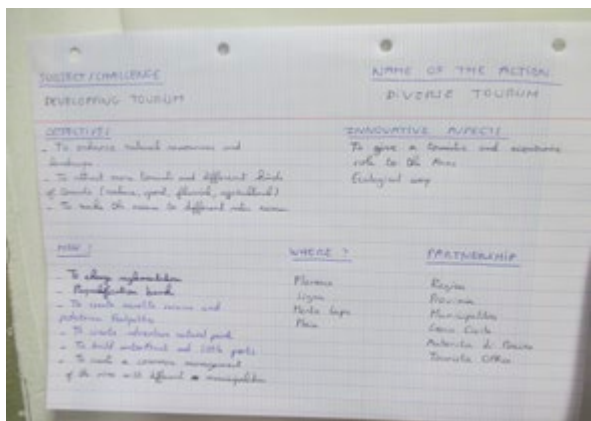 SUBJECT / CHALLENGE
NAME OF THE ACTION
DEVELOPPING TOURISM
DIVERSE TOURISM
OBJECTIVES
- To enhance natural resources and
landscape
- To attract more tourists and different kinds
of tourists (nature, sport, fluvial, agricultural)
- To make the access to different
INNOVATIVE ASPECTS
To give a touristic and economic
role to the Arno
Ecological way
HOW ?
- To change
- bank
- To create novelty
pedestrian footpaths
- To create adventure natural park
- To build and little ports
- To create a common management
of the river with different municipalities
WHERE ?
Florence
Signa
Monte Lupo
Pisa
PARTNERSHIP
Region
Provincia
Municipalities
Autorità di Bacino
Touristic Office